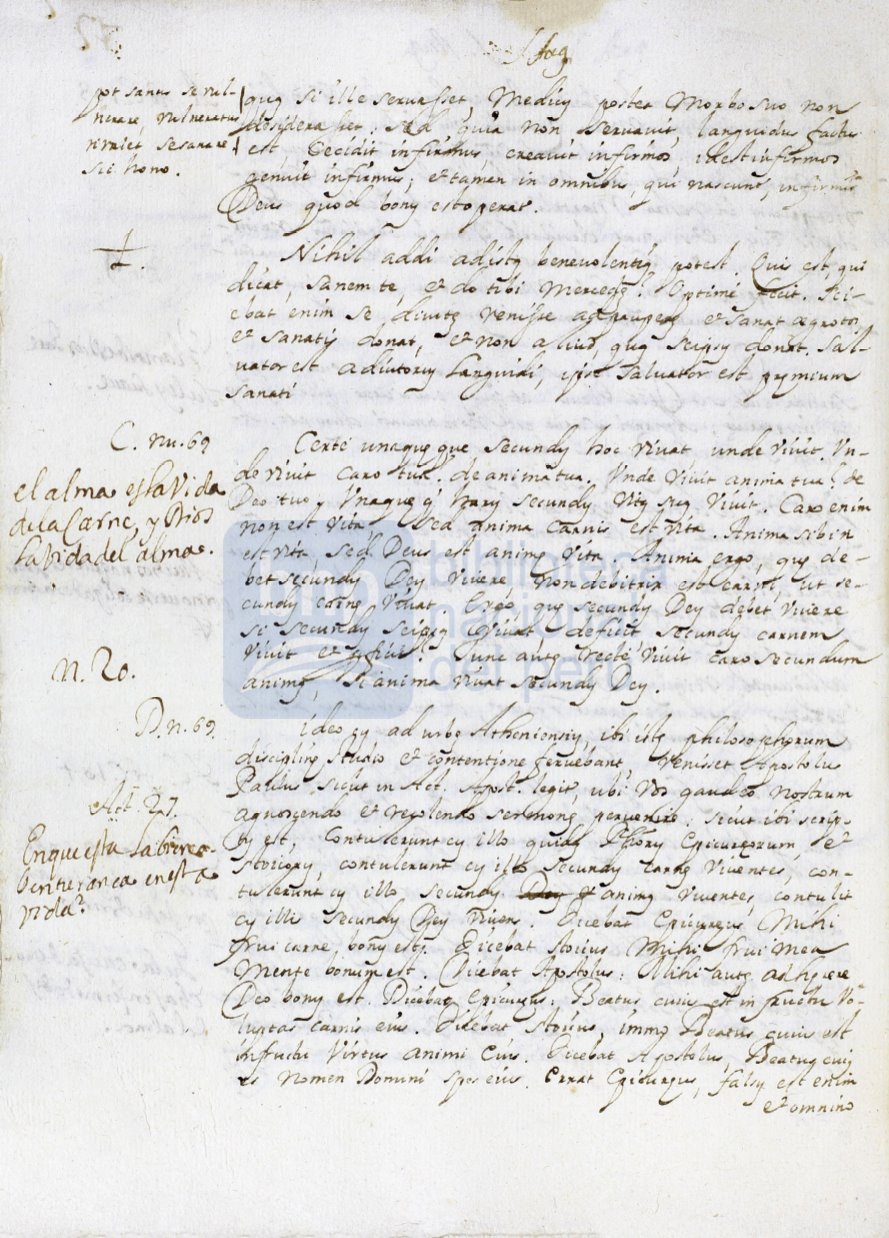 S Aug
pot sanus se vul-
nerare, vulneratus
se sanare
sic homo.
que si ille servasset, Medicum postea Morbo suo non
desiderasset: sed quia non servavit, languidus factus
est, Cecidit infirmus, creavit infirmos, id est infirmos
genuit infirmus; et tamen in omnibus, qui nascunt, infirmis
Deus quod bonum est operat.
Nihil addi ad istam benevolentiam potest. Quis est, qui
dicat, sanem te, et do tibi Mercedem? Optime fecit. Sci-
ebat enim se divitem venisse ad pauperem et sanat aegrotos
et sanatis donat, et non aliud, quam Seipsum donat. Sal-
vator est adiutorium Languidi, ipse Salvator est premium
Sanati
C. nu. 69
el alma es la Vida
de la Carne, y Dios
la vida del alma.
Certe unaqueque secundum hoc vivat unde vivit. Vn-
de vivit caro tua. de anima tua. Vnde vivit anima tua? de
Deo tuo. Vnaqueq harum secundum vitam suam Vivit. Caro enim
non est vita sed anima Carnis est vita. Anima sibi n
est vita sed Deus est anime Vita Anima ergo, que de-
bet secundum Deum Vivere Non debitrix est carni, ut se-
cundum carnem Vivat Ergo que secundum Deum debet Vivere
si secundum Seipsam vivat deficit secundum carnem
Vivit et Tunc autem recte vivit caro secundum
animam, si anima vivat secundum Deum.
N. 20.
D. n. 69.
Ideo cum ad urbem Atheniensium, ibi iste philosophorum
discipline studio et contentione fervebant, venisset Apostolus
Paulus, sicut in Act. Apost. legit, ubi vos gaudeo nostrum
agnoscendo et recolendo sermonem pervenire: sicut ibi scrip-
tum est, Contulerunt cum illo quidam Phorum Epicureorum et
Stoicorum, contulerunt cum illo secundum carnem Viventes, con-
tulerunt cum illo secundum Deum et animam viventes, contulit
cum illis secundum Deum Vivens. Dicebat Epicureus, Mihi
frui carne, bonum est. Dicebat Stoicus Mihi frui mea
Mente bonum est. Dicebat Apostolus: Mihi autem adherere
Deo bonum est. Dicebat Epicureus: Beatus cuius est in fructu Vo-
luptas carnis eius. Dicebat Stoicus, immo Beatus cuius est
in fructu Virtus animi Eius. Dicebat Apostolus, Beatus cuius
es Nomen Domini spes eius. Errat Epicureus, falsum est enim
et omnino
Act. 27.
En que esta la
en esta
vida?
biblioteca
nacional
del perú